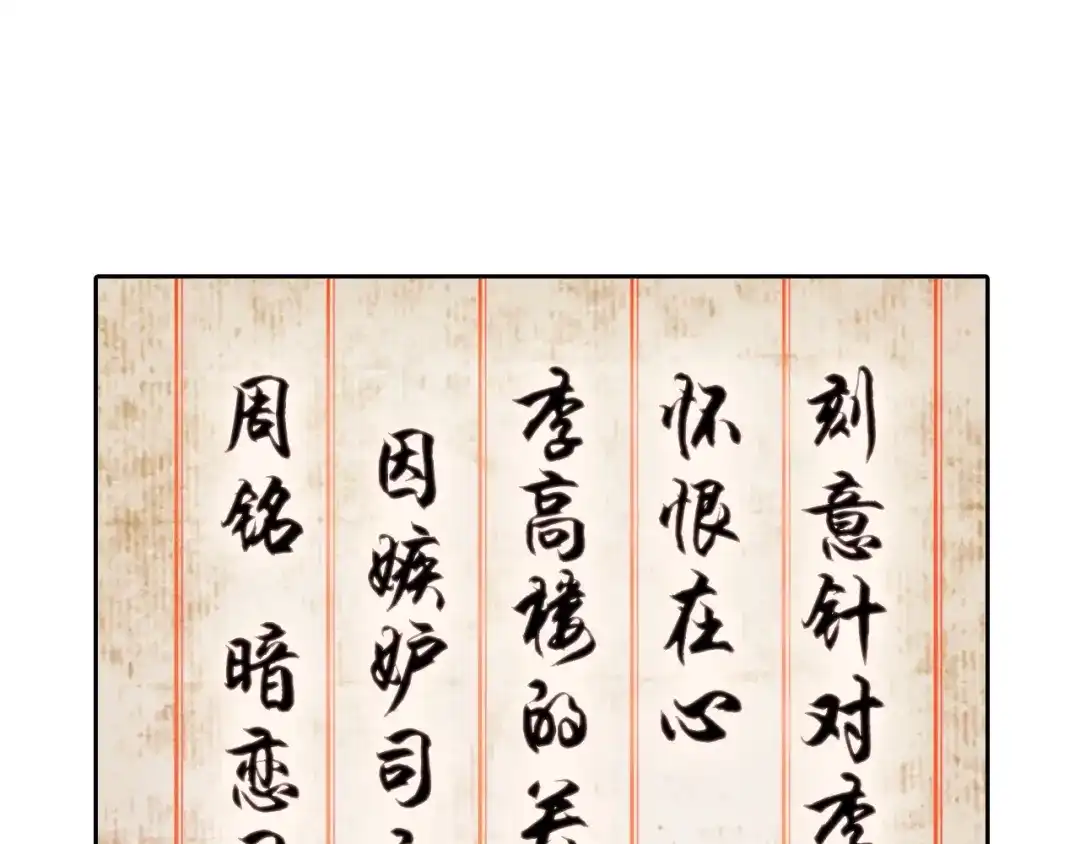 周铭 暗恋
因嫉妒司
李高楼的关
怀恨在心
刻意针对李